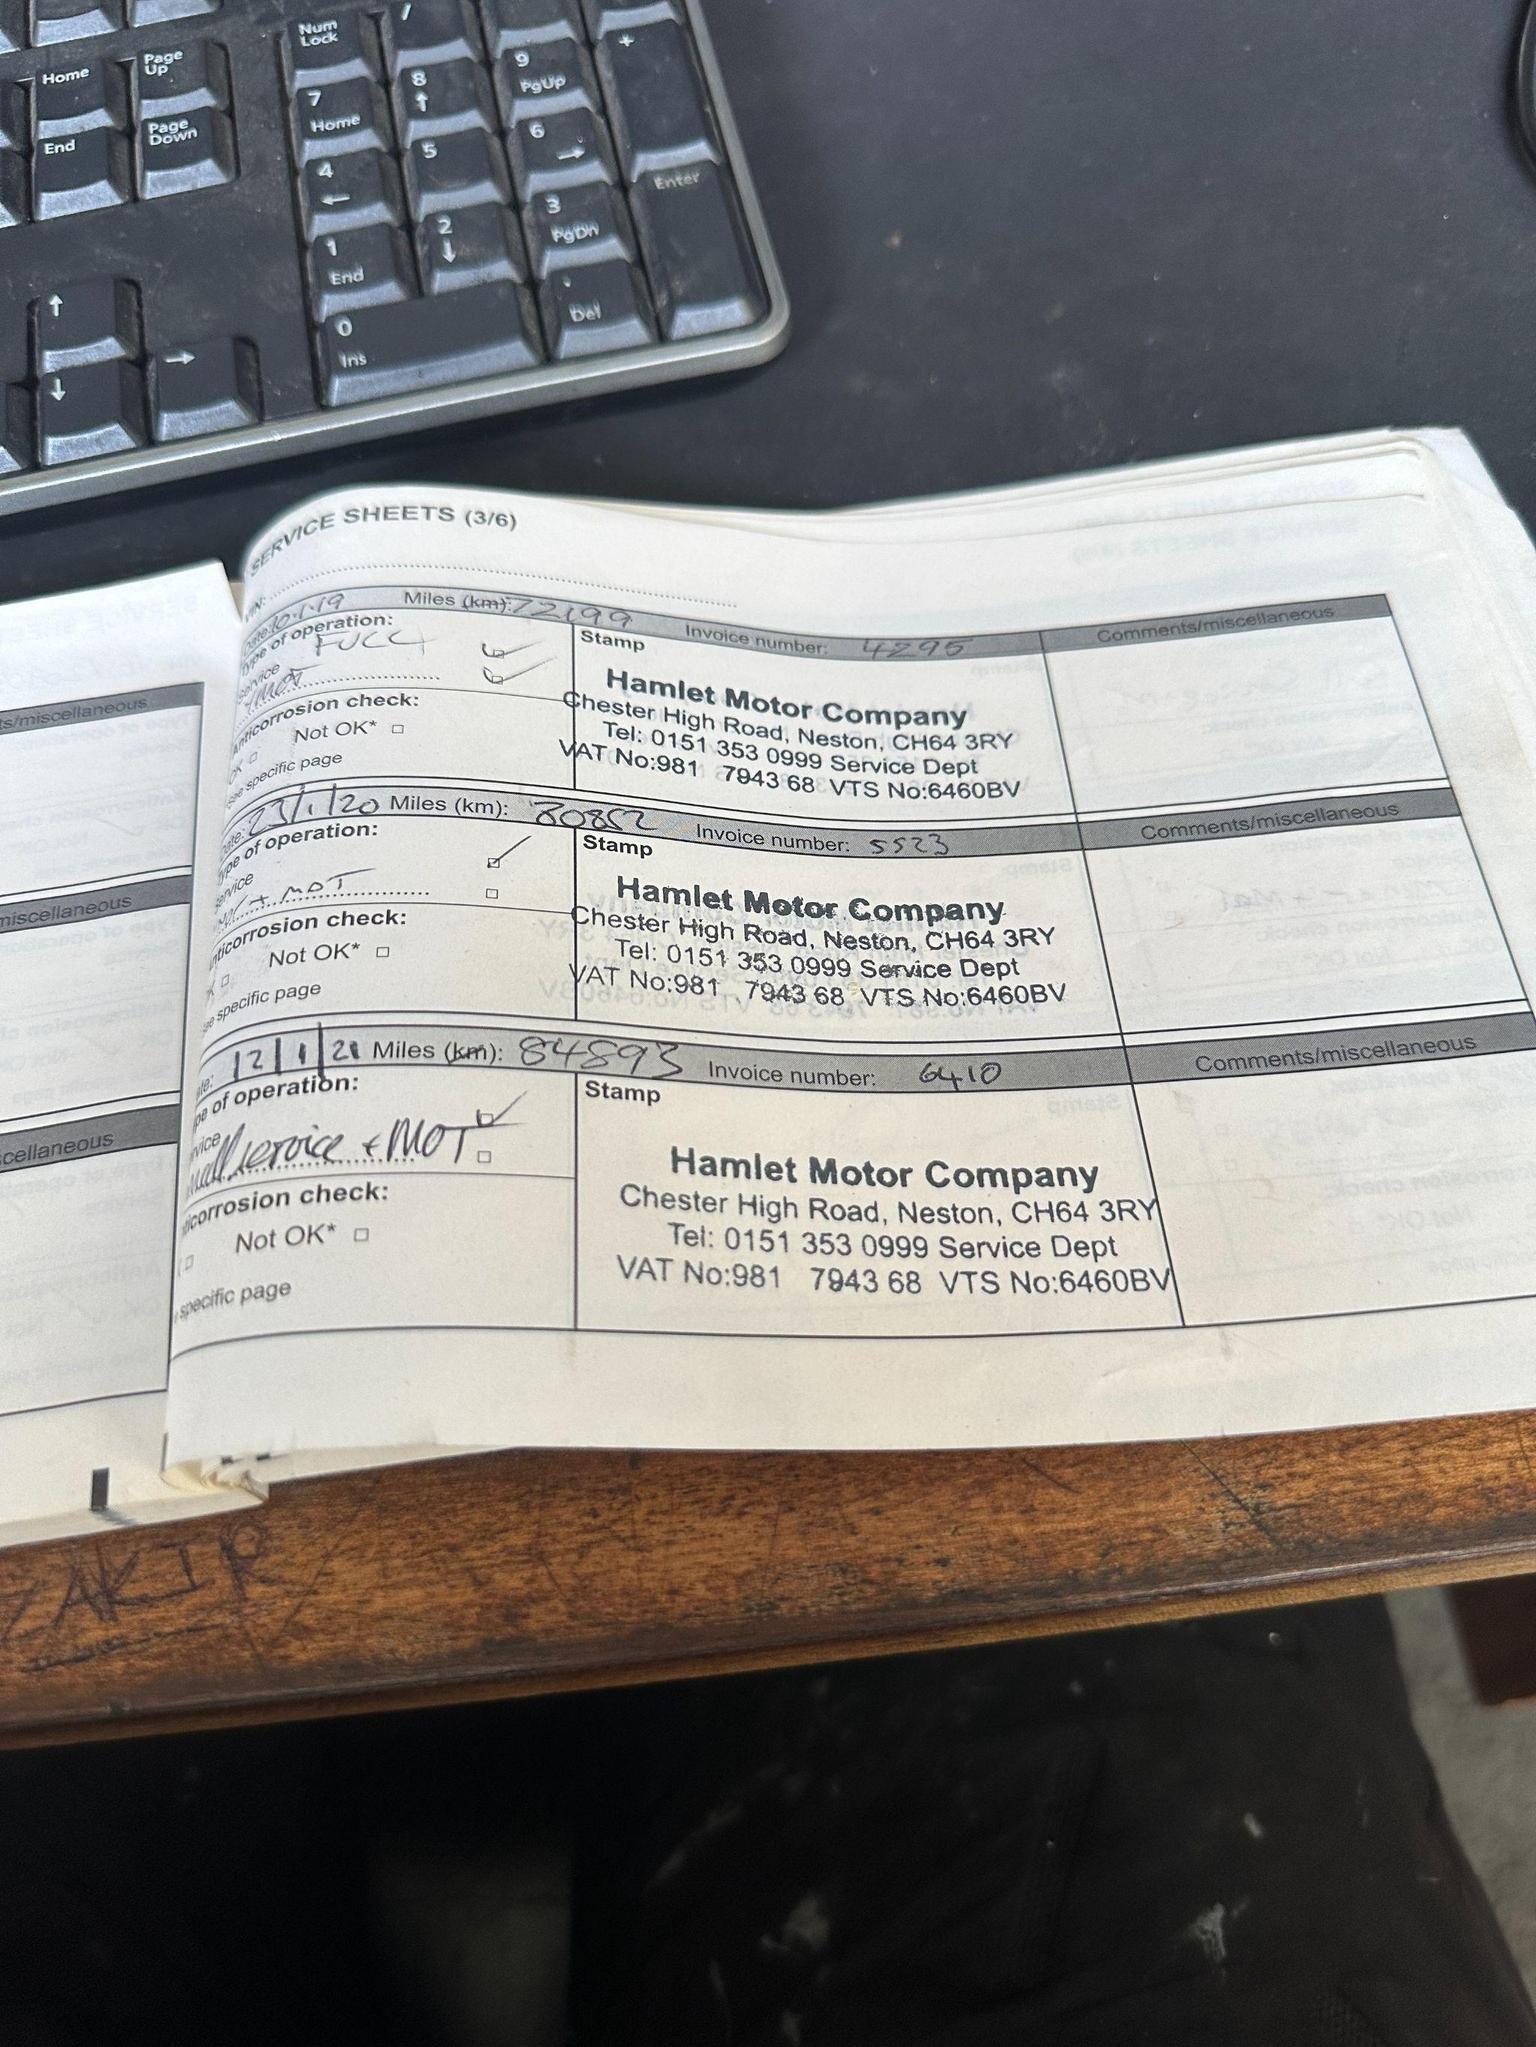 Num Lock
/
Home
Page Up
7 Home
8
9 PgUp
+
End
Page Down
4
5
6
1 End
2
3 PgDn
Enter
0 Ins
. Del
SERVICE SHEETS (3/6)
VIN:
Date: 10.1.19 Miles (km): 72199 Invoice number: 4295 Comments/miscellaneous
Type of operation:
Service FULL
MOT
Stamp
Hamlet Motor Company
Chester High Road, Neston, CH64 3RY
Tel: 0151 353 0999 Service Dept
VAT No:981 7943 68 VTS No:6460BV
Anticorrosion check:
OK Not OK*
*See specific page
Date: 23/1/20 Miles (km): 80852 Invoice number: 5523 Comments/miscellaneous
Type of operation:
Service
+ MOT
Stamp
Hamlet Motor Company
Chester High Road, Neston, CH64 3RY
Tel: 0151 353 0999 Service Dept
VAT No:981 7943 68 VTS No:6460BV
nticorrosion check:
Not OK*
specific page
12/1/21 Miles (km): 84893 Invoice number: 6410 Comments/miscellaneous
pe of operation:
rvice
service + MOT
Stamp
Hamlet Motor Company
Chester High Road, Neston, CH64 3RY
Tel: 0151 353 0999 Service Dept
VAT No:981 7943 68 VTS No:6460BV
ticorrosion check:
Not OK*
specific page
ts/miscellaneous
miscellaneous
scellaneous
ZAKIR